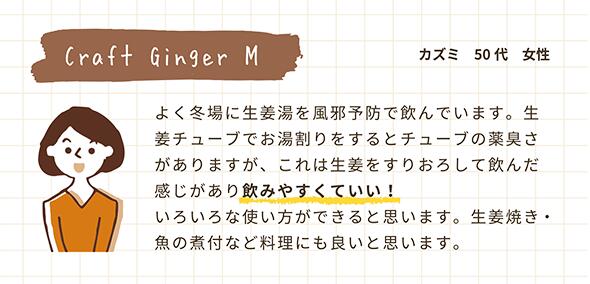 Craft Ginger M
カズミ　50代　女性
よく冬場に生姜湯を風邪予防で飲んでいます。生
姜チューブでお湯割りをするとチューブの薬臭さ
がありますが、これは生姜をすりおろして飲んだ
感じがあり飲みやすくていい！
いろいろな使い方ができると思います。生姜焼き・
魚の煮付など料理にも良いと思います。